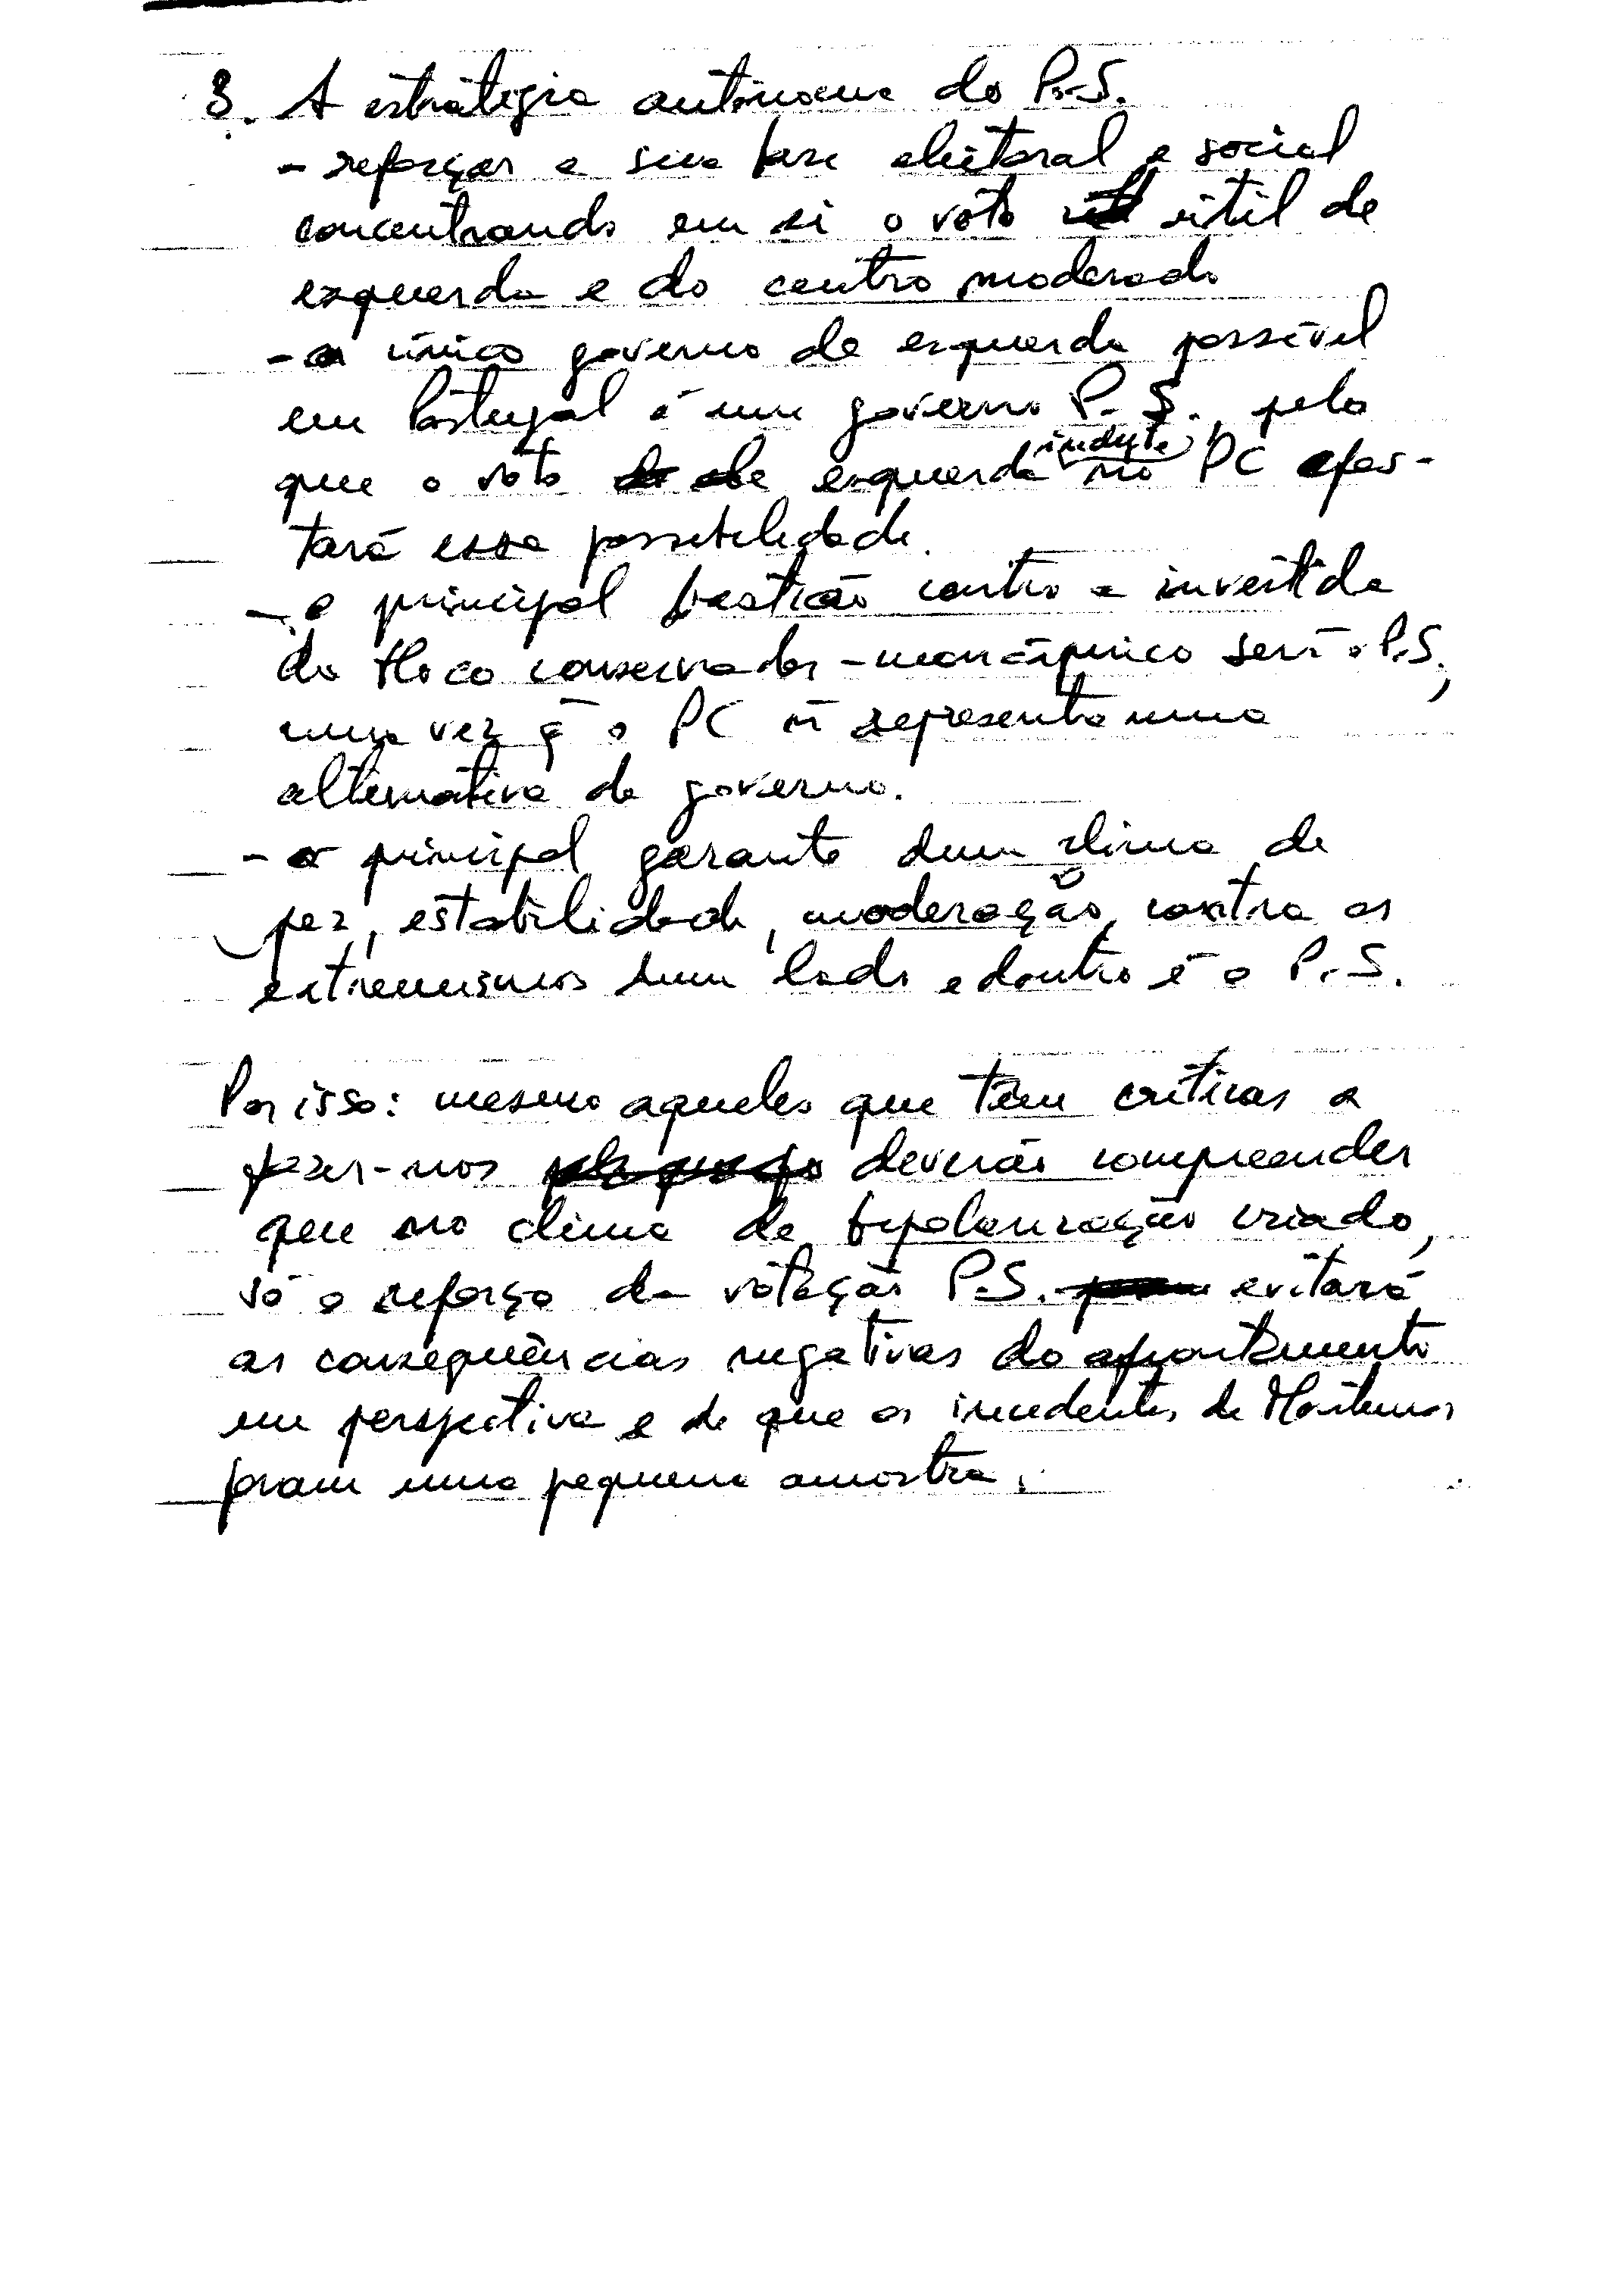 3. A estratégia autónoma do P.S.
- reforçar a sua base eleitoral e social
concentrando em si o voto útil de
esquerda e do centro moderado
- o único governo de esquerda possível
em Portugal é um governo P.S., pelo
que o voto de esquerda no PC afas-
tará essa possibilidade.
- o principal bastião contra a investida
do bloco conservador-monárquico será o P.S.,
uma vez q̃ o PC ñ representa uma
alternativa de governo.
- o principal garante dum clima de
paz, estabilidade, moderação, contra os
extremismos dum lado e doutro é o P.S.
Por isso: mesmo aqueles que têm críticas a
fazer-nos deverão compreender
que no clima de bipolarização criado,
só o reforço da votação P.S. evitará
as consequências negativas do afrontamento
em perspectiva e de que os incidentes de
foram uma pequena amostra.